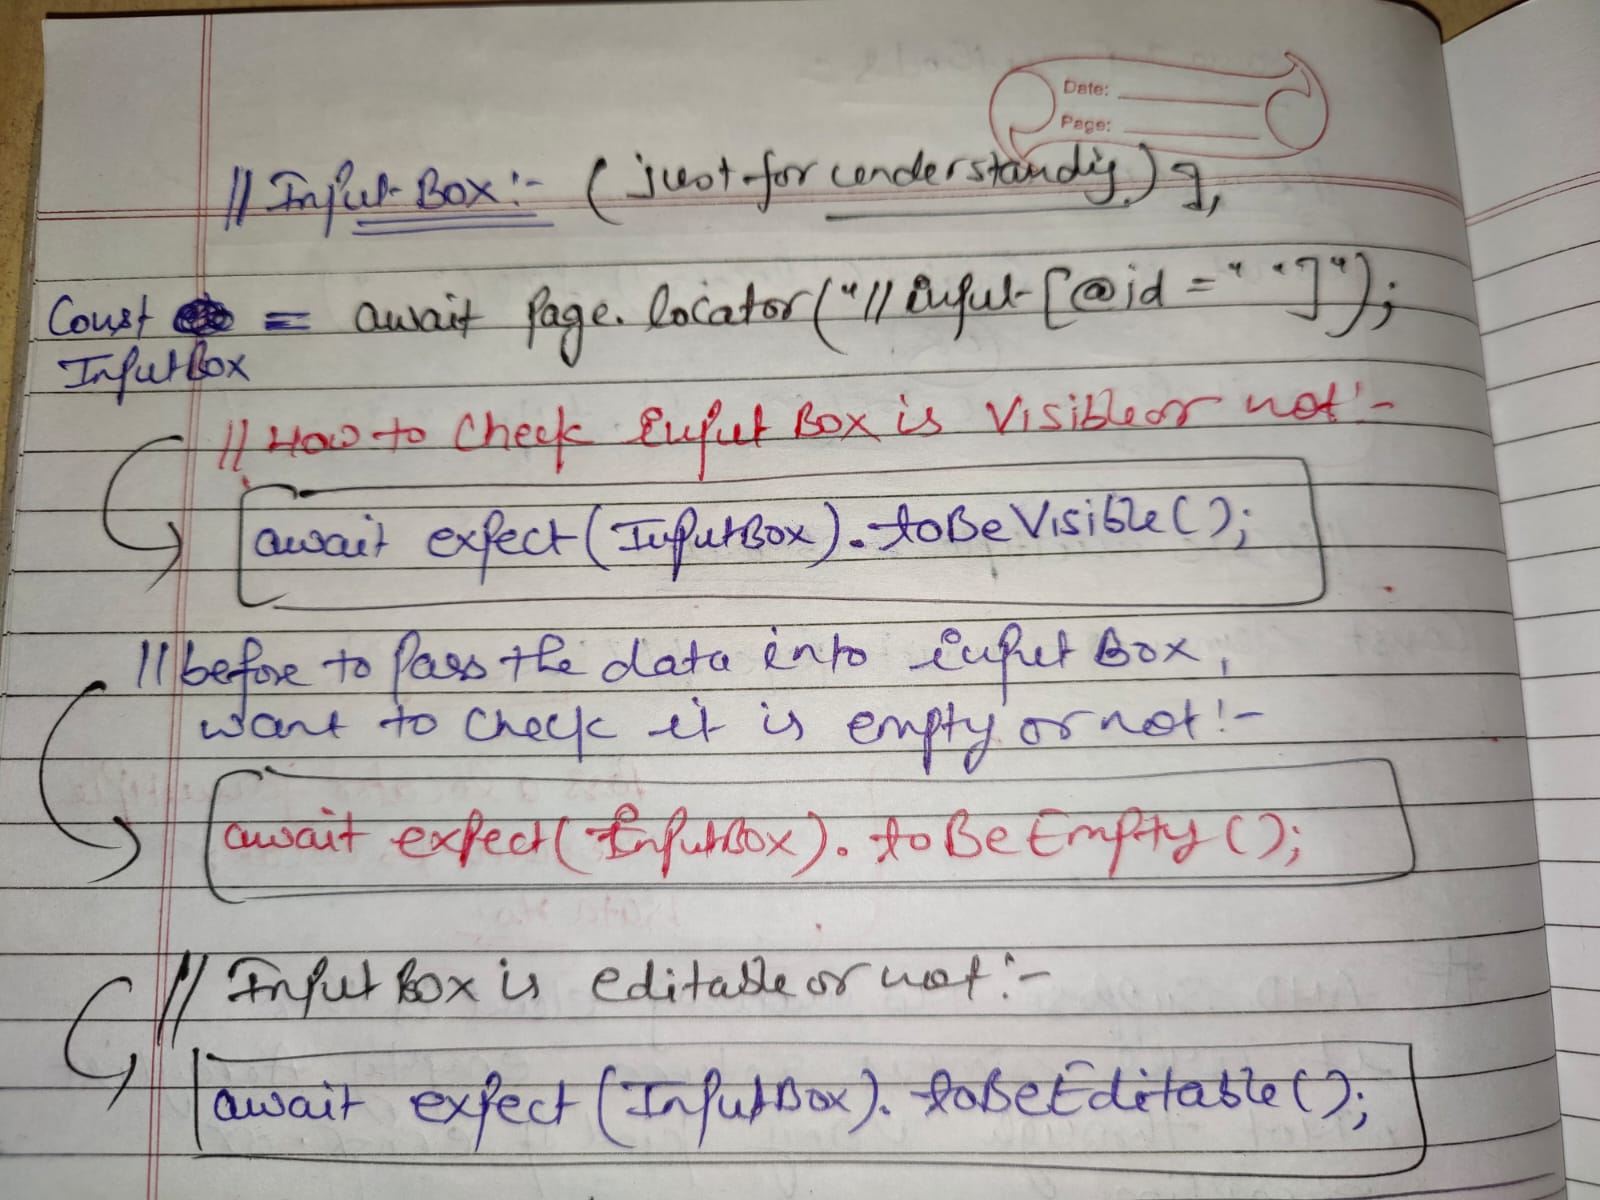 Date:
Page:
// Input Box:- (just for understandig)
Const = await Page.locator("//input[@id=" "]");
InputBox
// How to Check Input Box is Visible or not:-
await expect(InputBox).toBeVisible();
// before to Pass the data into input Box,
want to Check it is empty or not:-
await expect(InputBox).toBeEmpty();
// Input Box is editable or not:-
await expect(InputBox).toBeEditable();